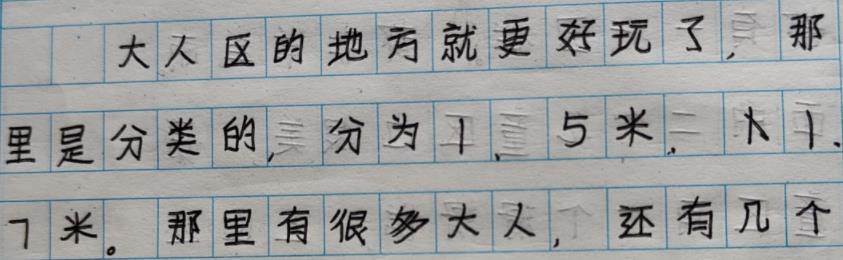 大人区的地方就更好玩了，那
里是分类的，分为1.5米，入1.
7米。那里有很多大人，还有几个